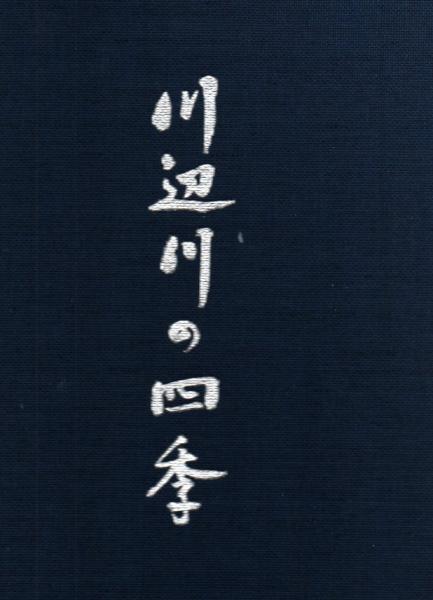 川辺川の四季